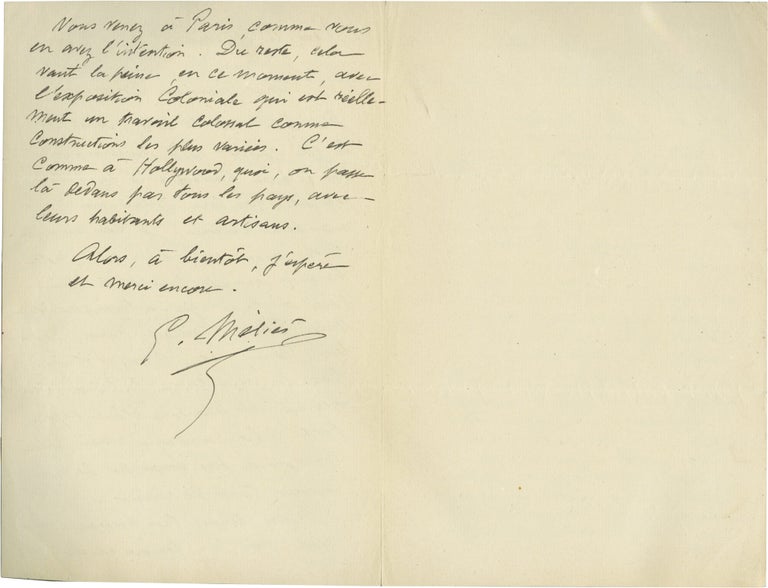 Vous venez à Paris, comme vous
en avez l'intention. Du reste, cela
vaut la peine, en ce moment, avec
l'exposition Coloniale qui est réelle-
ment un travail colossal comme
constructions les plus variées. C'est
comme à Hollywood, quoi, on passe
là dedans par tous les pays, avec
leurs habitants et artisans.
Alors, à bientôt, j'espère
et merci encore.
G. Méliès